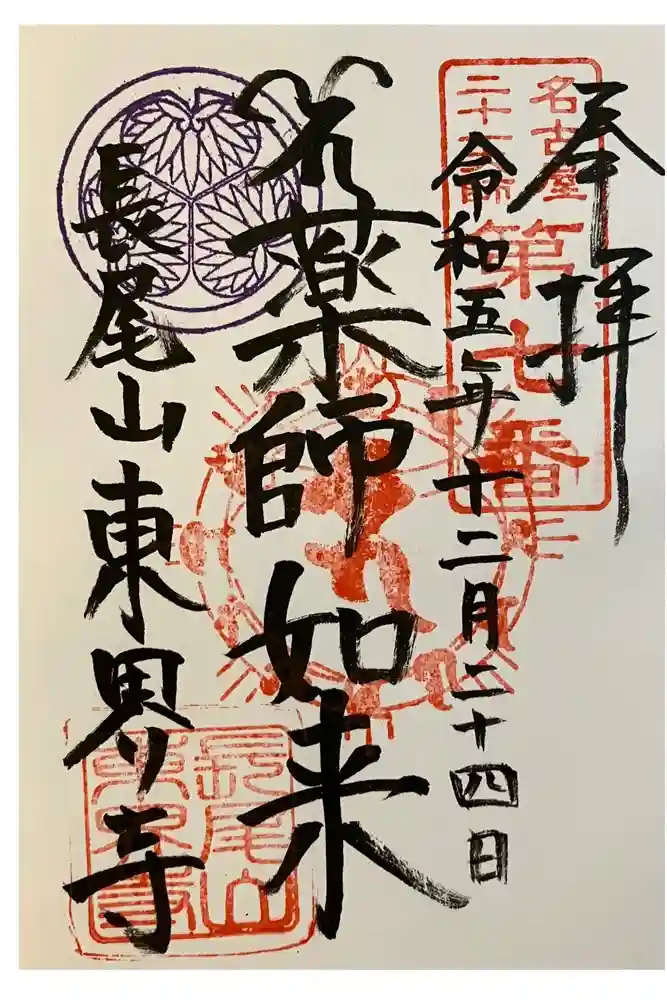 奉拝
名古屋
二十一大師
第七番
令和五年十二月二十四日
薬師如来
長尾山東界寺
長尾山
東界寺